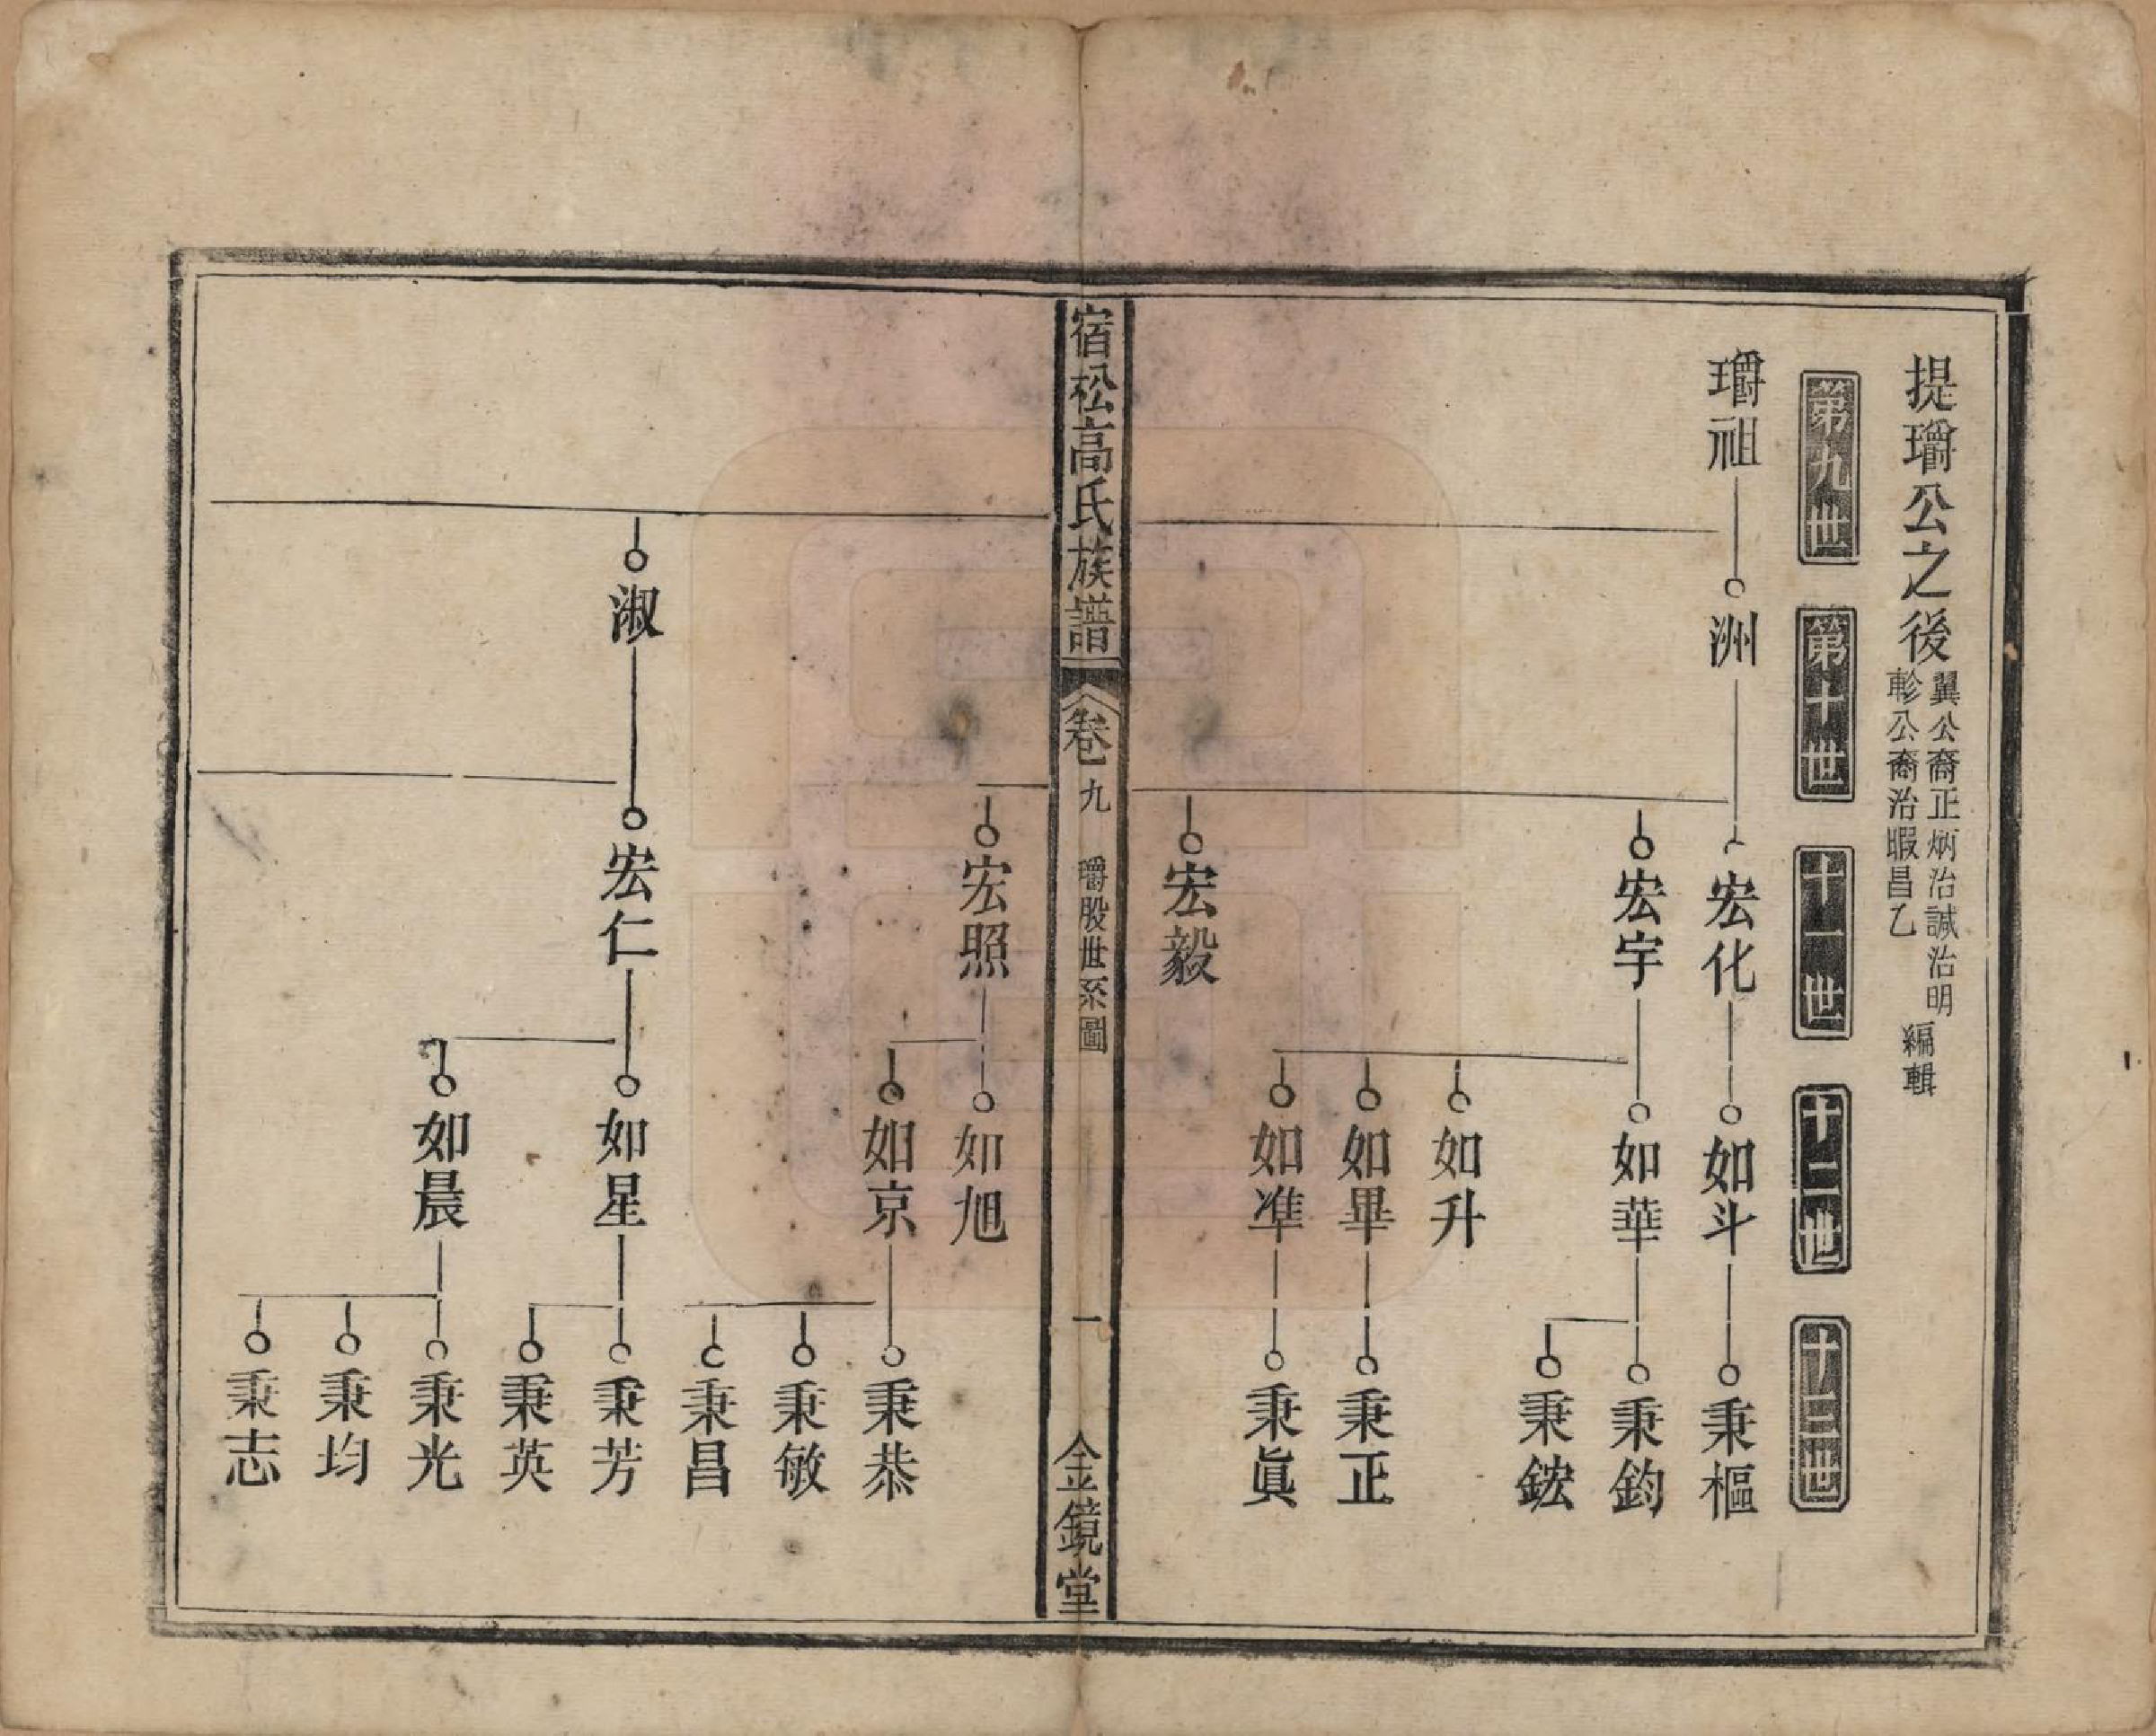 提瓓公之後
翼公裔正炳治誠治明
軫公裔治暇昌乙
編輯
第九世
第十世
十一世
十二世
十三世
祖
洲
宏化
如斗
秉樞
宏宇
如華
秉鈞
秉鋐
如升
如畢
秉正
如準
秉眞
宏毅
宿松高氏族譜
卷九
股世系圖
一
金鏡堂
宏照
如旭
如京
秉恭
秉敏
秉昌
淑
宏仁
如星
秉芳
秉英
如晨
秉光
秉均
秉志